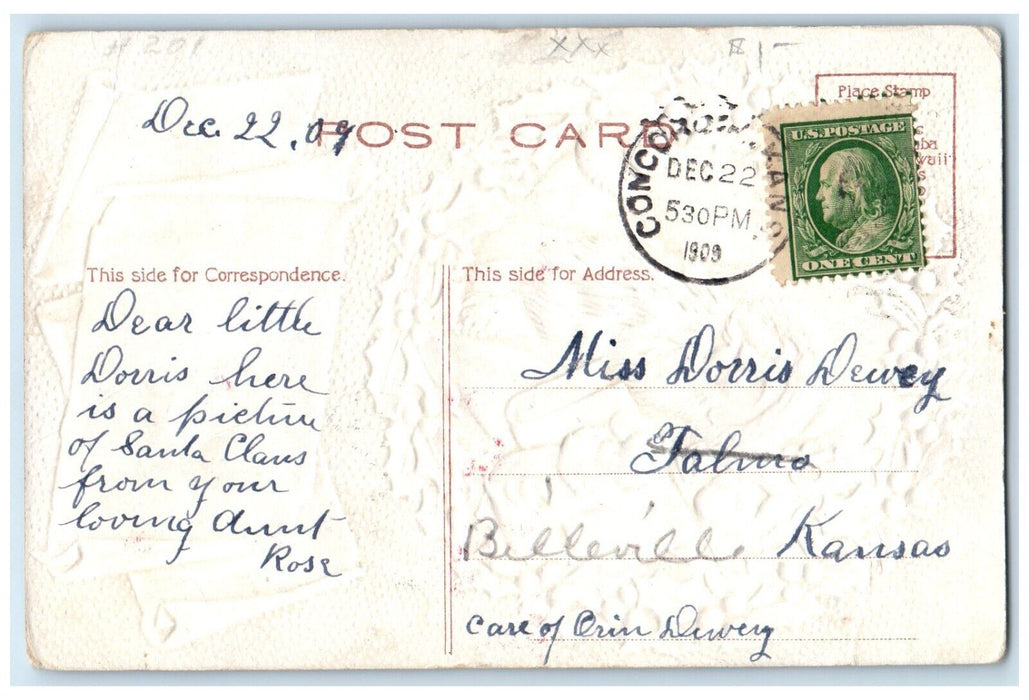 # 201
xxx
$1-
Dec. 22, 09
POST CARD
Place Stamp
CONCORDIA KANS.
DEC 22
530 PM
1909
U.S. POSTAGE
ONE CENT
This side for Correspondence.
This side for Address.
Dear little
Dorris here
is a picture
of Santa Claus
from your
loving Aunt
Rose
Miss Dorris Dewey
Talmo
Belleville Kansas
care of Orin Dewery